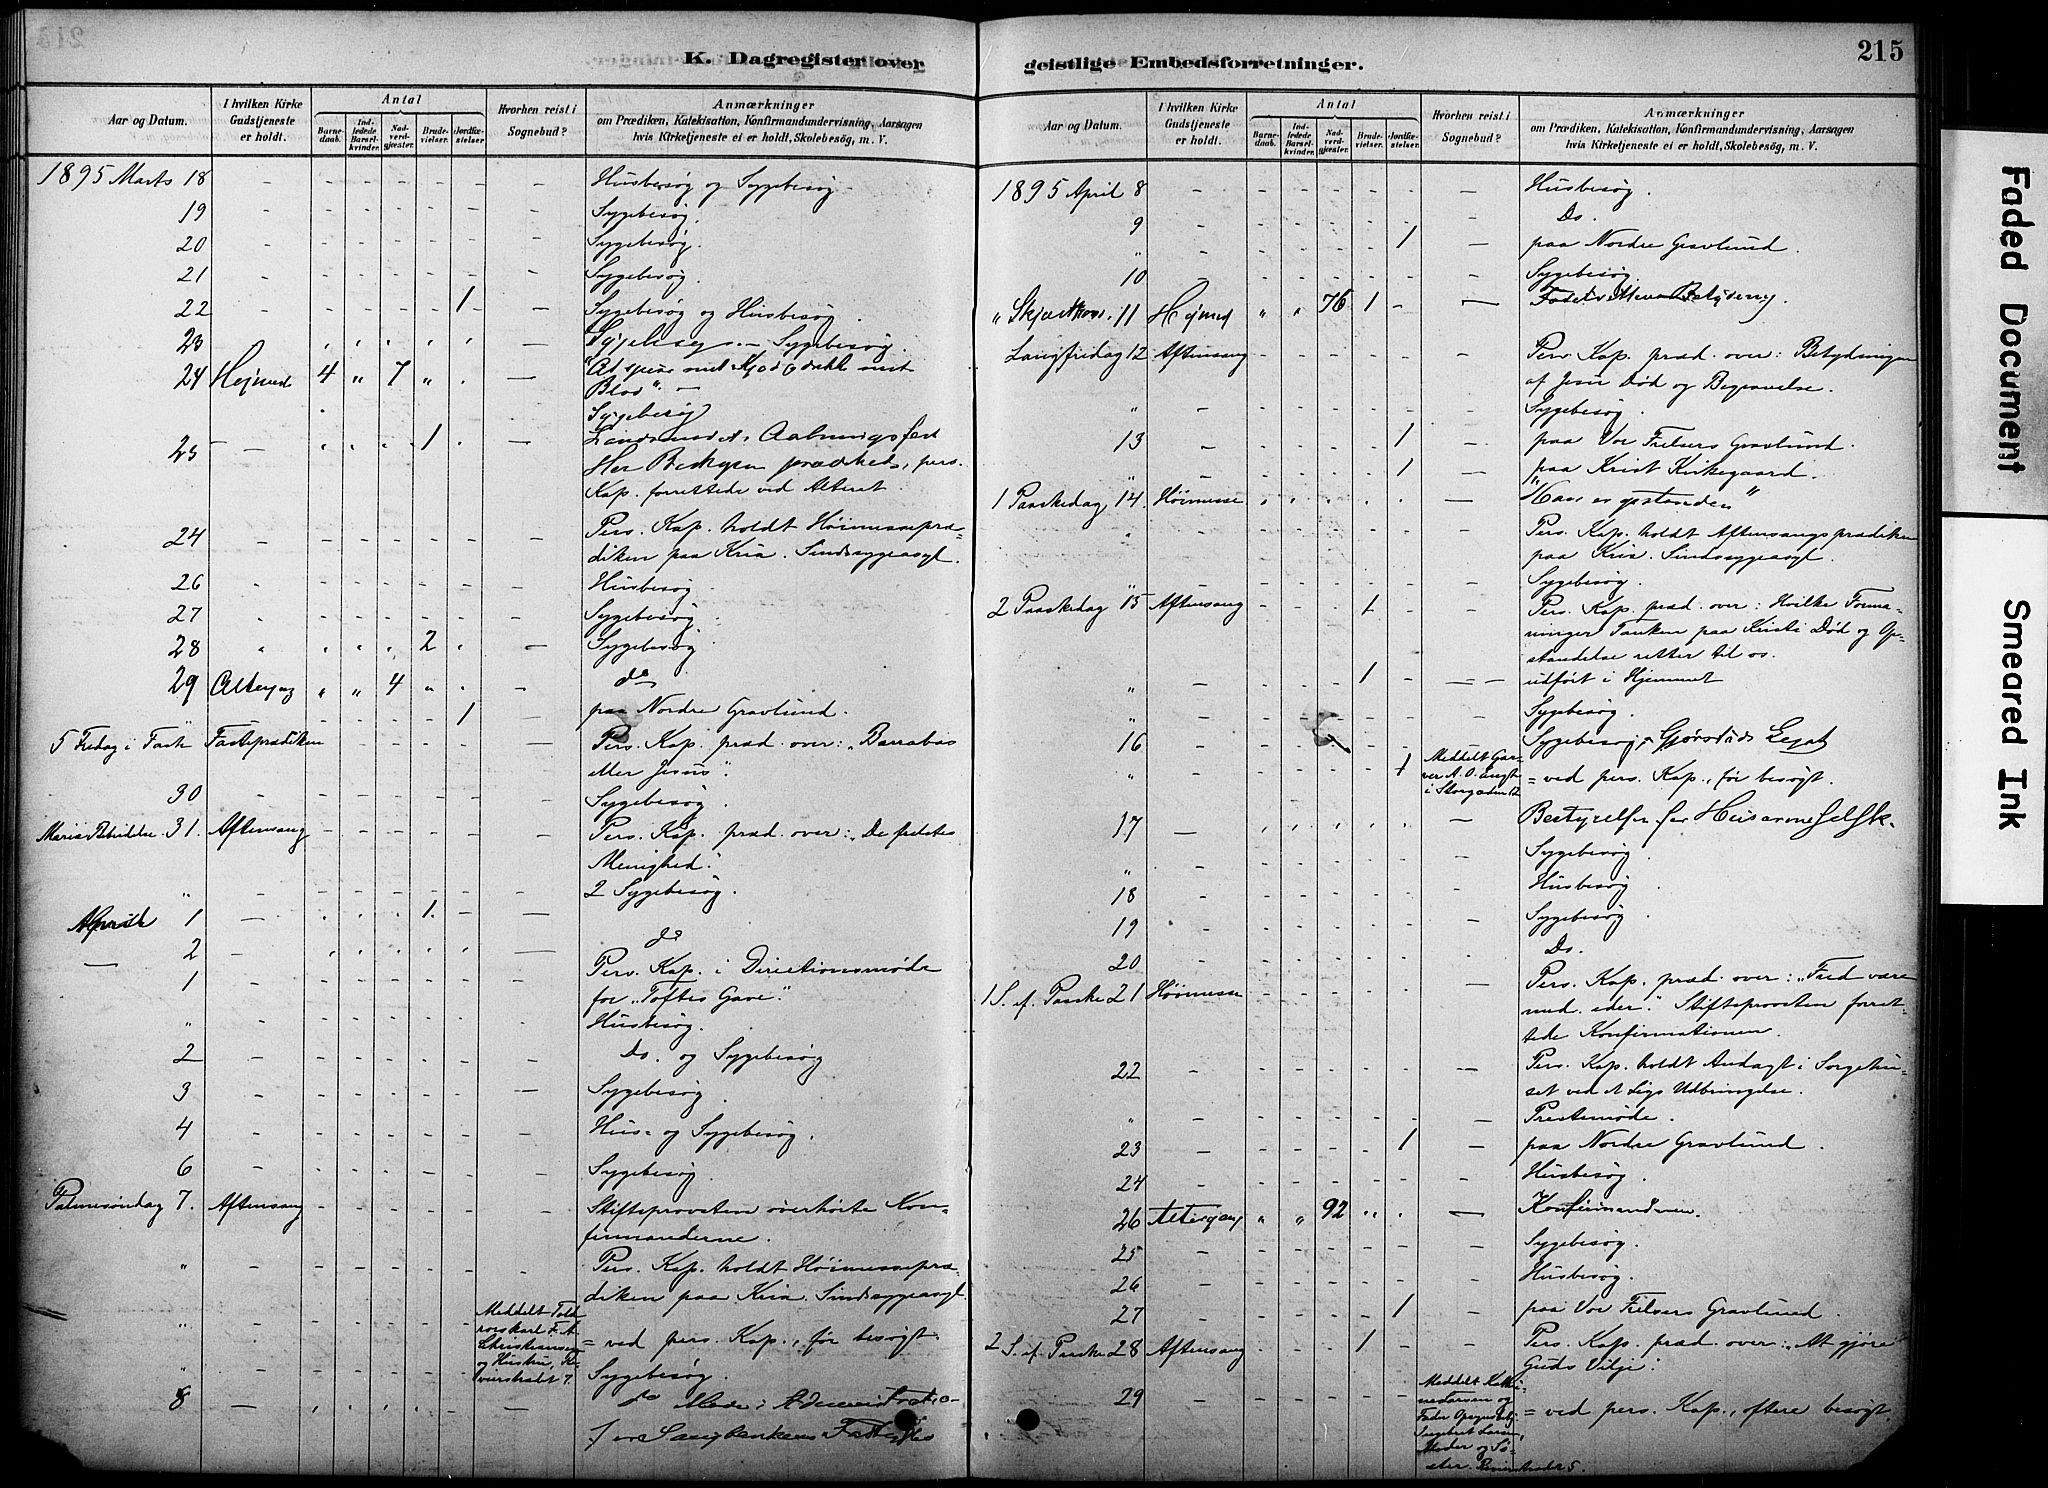 K. Dagregister over
Aar og Datum.
I hvilken Kirke Gudstjeneste er holdt.
Antal
Barnedaab.
Indledede Barselkvinder.
Nadverdgjæster.
Brudevielser.
Jordfæstelser
Hvorhen reist i Sognebud?
Anmærkninger
om Prædiken, Katekisation, Konfirmandundervisning, Aarsagen
hvis Kirketjeneste ei er holdt, Skolebesøg, m. V.
1895 Marts 18 Husbesøg og Sygebesøg.
19 Sygebesøg.
20 Sygebesøg.
21 Sygebesøg.
22 1 Sygebesøg og Husbesøg.
23 Sygebesøg.
24 Højmed 4 " 7 "
Blod". —
Sygebesøg
25 1 Aabningsfest
prædikede, pers.
Kap. forrettede ved Alteret.
24 Pers. Kap. holdt Høimessepræ-
diken paa Kria. Sindssygeasyl.
26 Husbesøg.
27 Sygebesøg.
28 2 Sygebesøg
29 Altergang " " 4 " do
1 paa Nordre Gravlund.
5 Fredag i Faste Fasteprædiken Pers. Kap. præd. over: „Barrabas
eller Jesus".
30 Sygebesøg.
Mariæ Bebudelse 31 Aftensang Pers. Kap. præd. over: „De frelstes
Menighed".
" 2 Sygebesøg.
April 1 1.
2 do
1 Pers. Kap. i Directionsmøde
for „Toftes Gave".
" Husbesøg.
2 Do. og Sygebesøg
3 Sygebesøg.
4 Hus- og Sygebesøg.
6 Sygebesøg.
Palmesøndag 7. Aftensang Stiftsprovsten overhørte Kon-
firmanderne.
" Pers. Kap. holdt Høimessepræ-
diken paa Kria. Sindssygeasyl.
" Meddelt
Christiansen
og Hustru,
= ved pers. Kap., før besøgt.
" Sygebesøg.
8 do Møde i
for
geistlige Embedsforretninger.
215
Aar og Datum.
I hvilken Kirke Gudstjeneste er holdt.
Antal
Barnedaab.
Indledede Barselkvinder.
Nadverdgjæster.
Brudevielser.
Jordfæstelser.
Hvorhen reist i Sognebud?
Anmærkninger
om Prædiken, Katekisation, Konfirmandundervisning, Aarsagen
hvis Kirketjeneste ei er holdt, Skolebesøg, m. V.
1895 April 8 Husbesøg.
9 Do.
" 1 paa Nordre Gravlund.
10 Sygebesøg.
" Skjærthors. 11 Højmed " " 76 1
Langfredag 12 Aftensang Pers. Kap. præd. over: Betydningen
af Jesu Død og Begravelse.
" Sygebesøg.
13 1 paa Vor Frelsers Gravlund.
" 1 paa Krist Kirkegaard.
1 Paaskedag 14. Høimesse "Han er opstanden"
" Pers. Kap. holdt Aftensangsprædiken
paa Kria. Sindssygeasyl
" Sygebesøg.
2 Paaskedag 15 Aftensang 1 Pers. Kap. præd. over: Hvilke Forma-
ninger Tanken paa Kristi Død og Op-
standelse retter til os.
" 1 udført i Hjemmet
" Sygebesøg.
16 Sygebesøg. Legat
" 1 Meddelt Gar-
ver A. O. Engh
i Storgaden 12
= ved pers. Kap., før besøgt.
17 Bestyrelsen for
" Sygebesøg.
18 Husbesøg.
19 Sygebesøg.
20 Do.
1 S. e. Paaske 21 Høimesse Pers. Kap. præd. over: „Fred være
med eder". Stiftsprovsten forret-
tede Konfirmationen.
22 Pers. Kap. holdt Andagt i Sorgehu-
set ved et Ligs Udbringelse.
" Prestemøde.
23 1 paa Nordre Gravlund.
24 Husbesøg.
26 Altergang " " 92 " " Konfirmanderne.
25 Sygebesøg.
26 Husbesøg.
27 1 paa Vor Frelsers Gravlund.
2 S. e. Paaske 28 Aftensang 1 Pers. Kap. præd. over: „At gjøre
Guds Vilje".
29 Meddelt
Fader
Moder og Sø-
ster.
= ved pers. Kap., oftere besøgt.
Faded Document
Smeared Ink